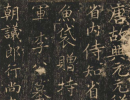 唐故興元元
省内侍知省
魚袋贈特
軍李公
朝議郎行尚